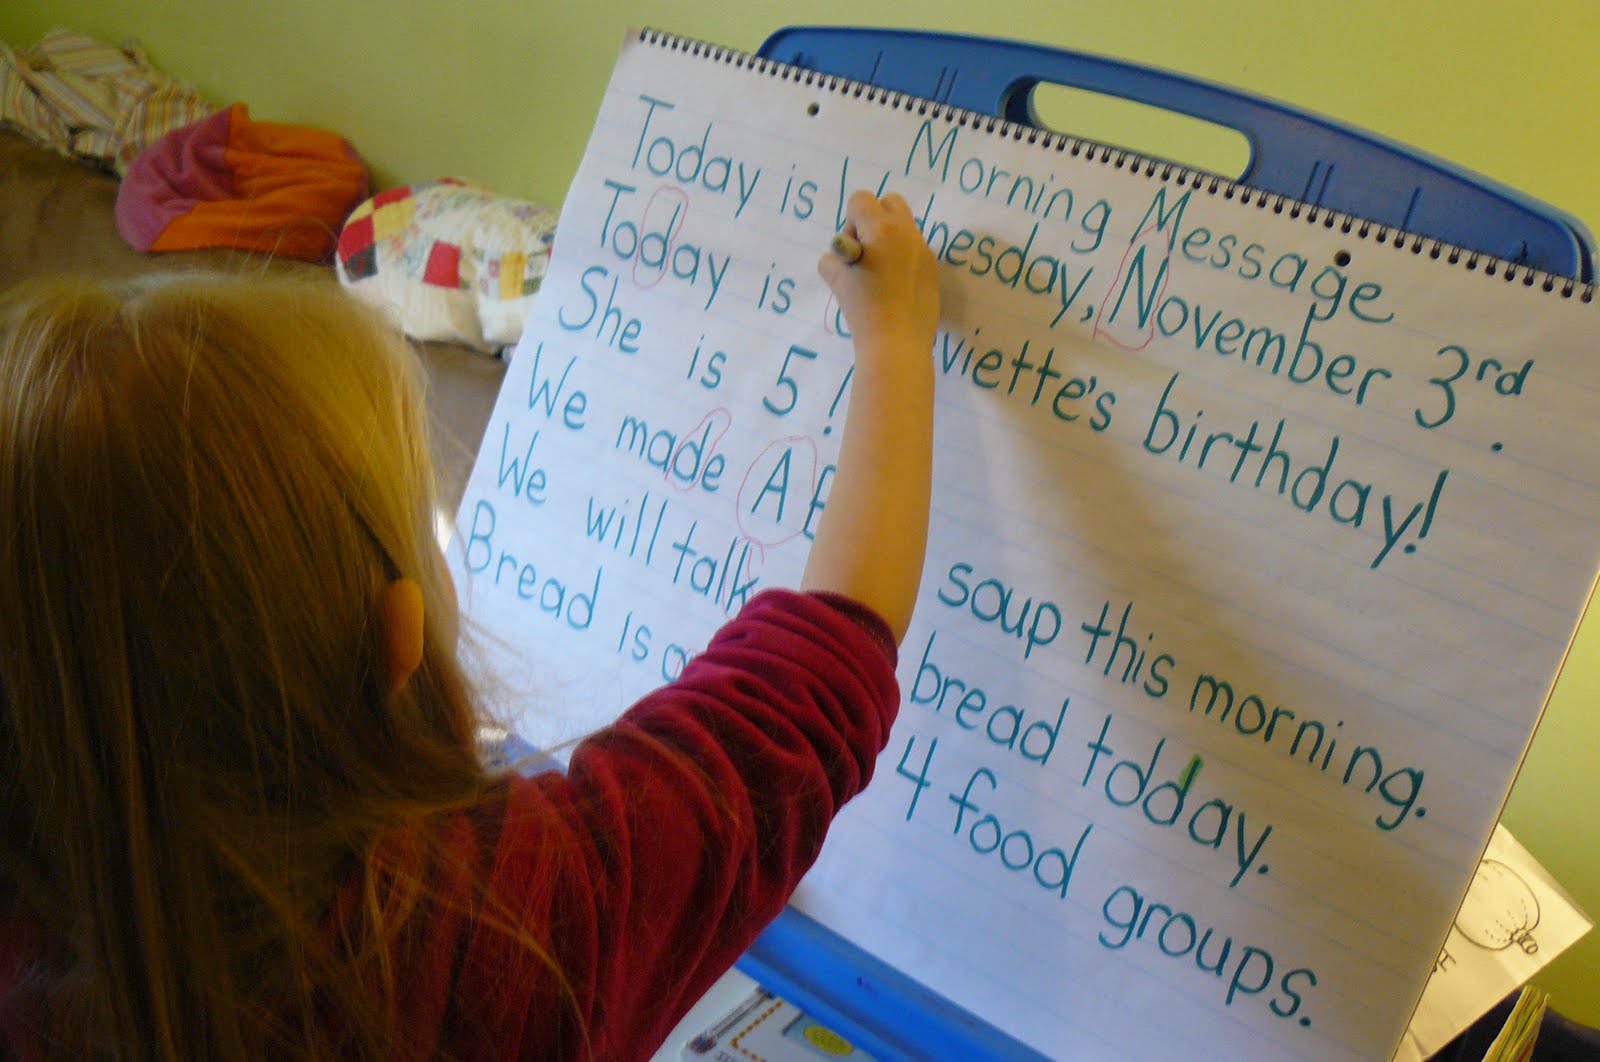 Morning Message
Today is Wednesday, November 3rd.
Today is viette's birthday!
She is 5!
We made A soup this morning.
We will talk bread today.
Bread is 4 food groups.